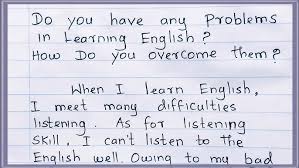 Do you have any Problems
in Learning English?
How Do you overcome them?
When I learn English,
I meet many difficulties
listening. As for listening
skill, I can't listen to the
English well. Owing to my bad